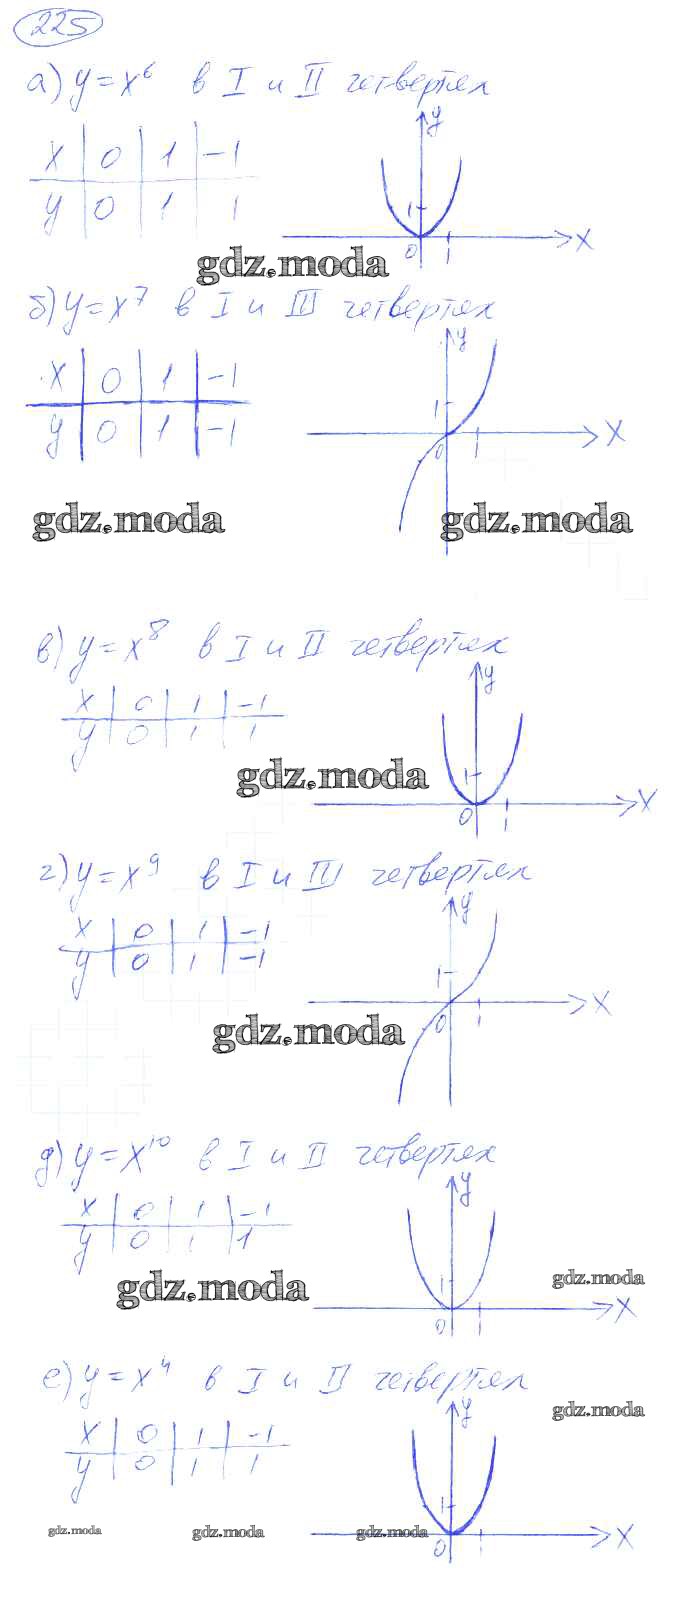 225
а) y = x⁶ в I и II четвертях
x | 0 | 1 | -1
y | 0 | 1 | 1
y
1
0 1 x
gdz.moda
б) y = x⁷ в I и III четвертях
x | 0 | 1 | -1
y | 0 | 1 | -1
y
1
0 1 x
gdz.moda gdz.moda
в) y = x⁸ в I и II четвертях
x | 0 | 1 | -1
y | 0 | 1 | 1
y
1
0 1 x
gdz.moda
г) y = x⁹ в I и III четвертях
x | 0 | 1 | -1
y | 0 | 1 | -1
y
1
0 1 x
gdz.moda
д) y = x¹⁰ в I и II четвертях
x | 0 | 1 | -1
y | 0 | 1 | 1
y
1
0 1 x
gdz.moda gdz.moda
е) y = x⁴ в I и II четвертях
x | 0 | 1 | -1
y | 0 | 1 | 1
y
1
0 1 x
gdz.moda
gdz.moda gdz.moda gdz.moda